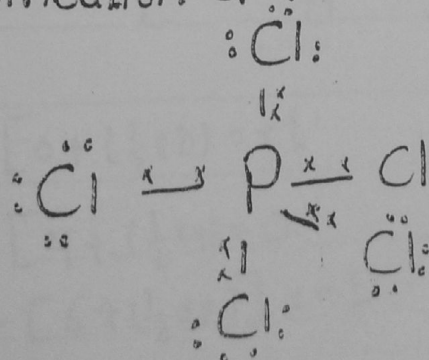 Cl
Cl P Cl
Cl
Cl